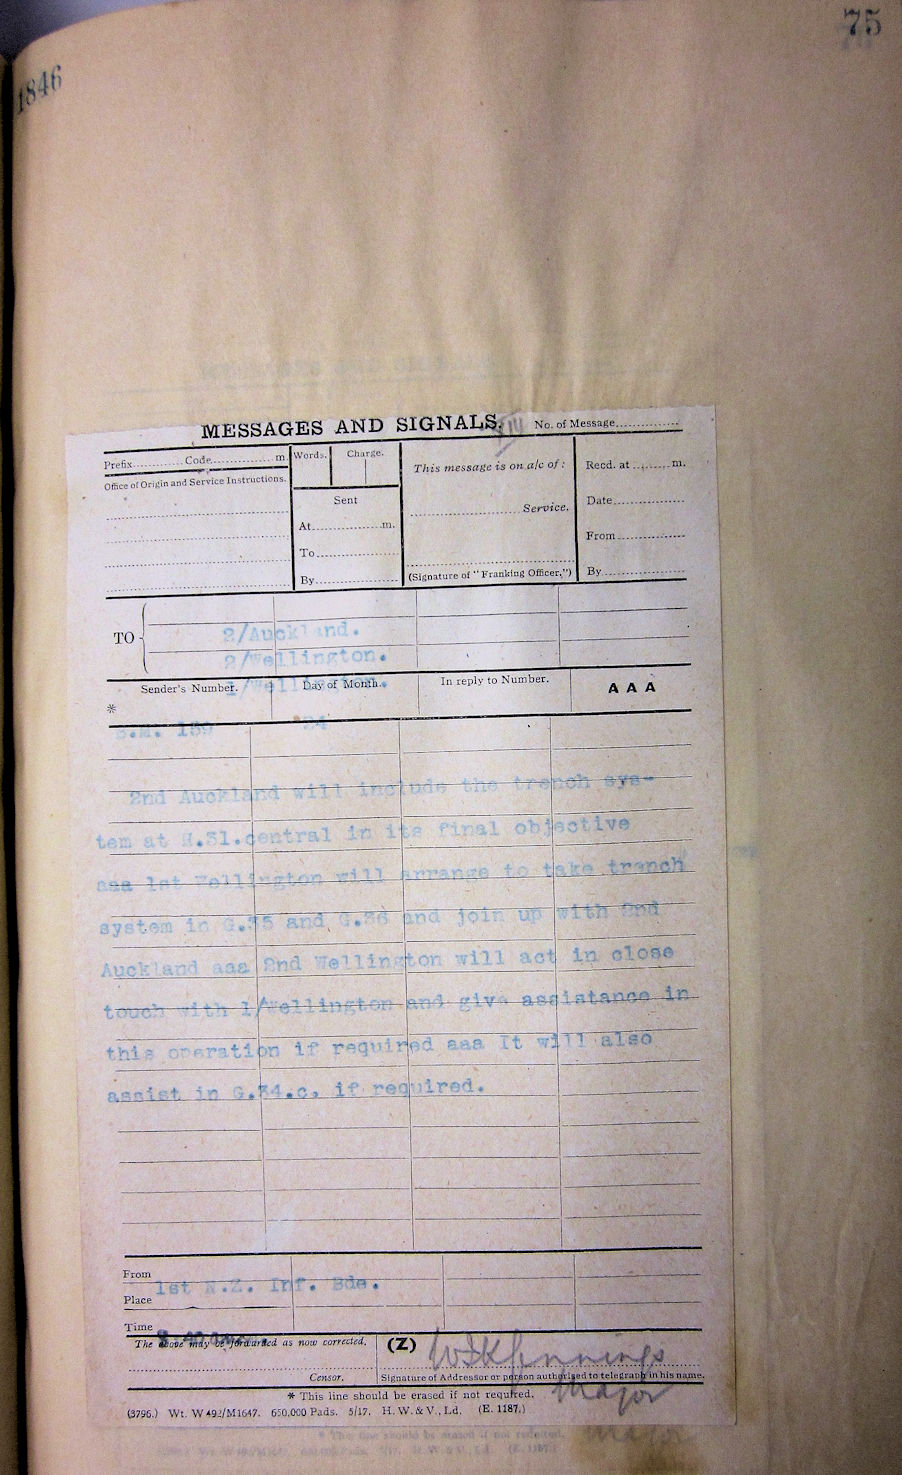 75
1846
MESSAGES AND SIGNALS. No. of Message
Prefix Code m.
Words. Charge.
This message is on a/c of:
Recd. at m.
Office of Origin and Service Instructions.
Sent
Service.
Date
At m.
From
To
By
(Signature of "Franking Officer.")
By
TO
2/Auckland.
2/Wellington.
1/Wellington.
Sender's Number. Day of Month. In reply to Number. A A A
*
B.M. 159 24
2nd Auckland will include the trench sys-
tem at H.31.central in its final objective
aaa 1st Wellington will arrange to take trench
system in G.35 and G.36 and join up with 2nd
Auckland aaa 2nd Wellington will act in close
touch with 1/Wellington and give assistance in
this operation if required aaa It will also
assist in G.34.c. if required.
From
1st N.Z. Inf. Bde.
Place
Time
The above may be forwarded as now corrected. (Z)
Censor. Signature of Addressor or person authorised to telegraph in his name.
Major
* This line should be erased if not required.
(3796.) Wt. W492/M1647. 650,000 Pads. 5/17. H. W. & V., Ld. (E. 1187.)